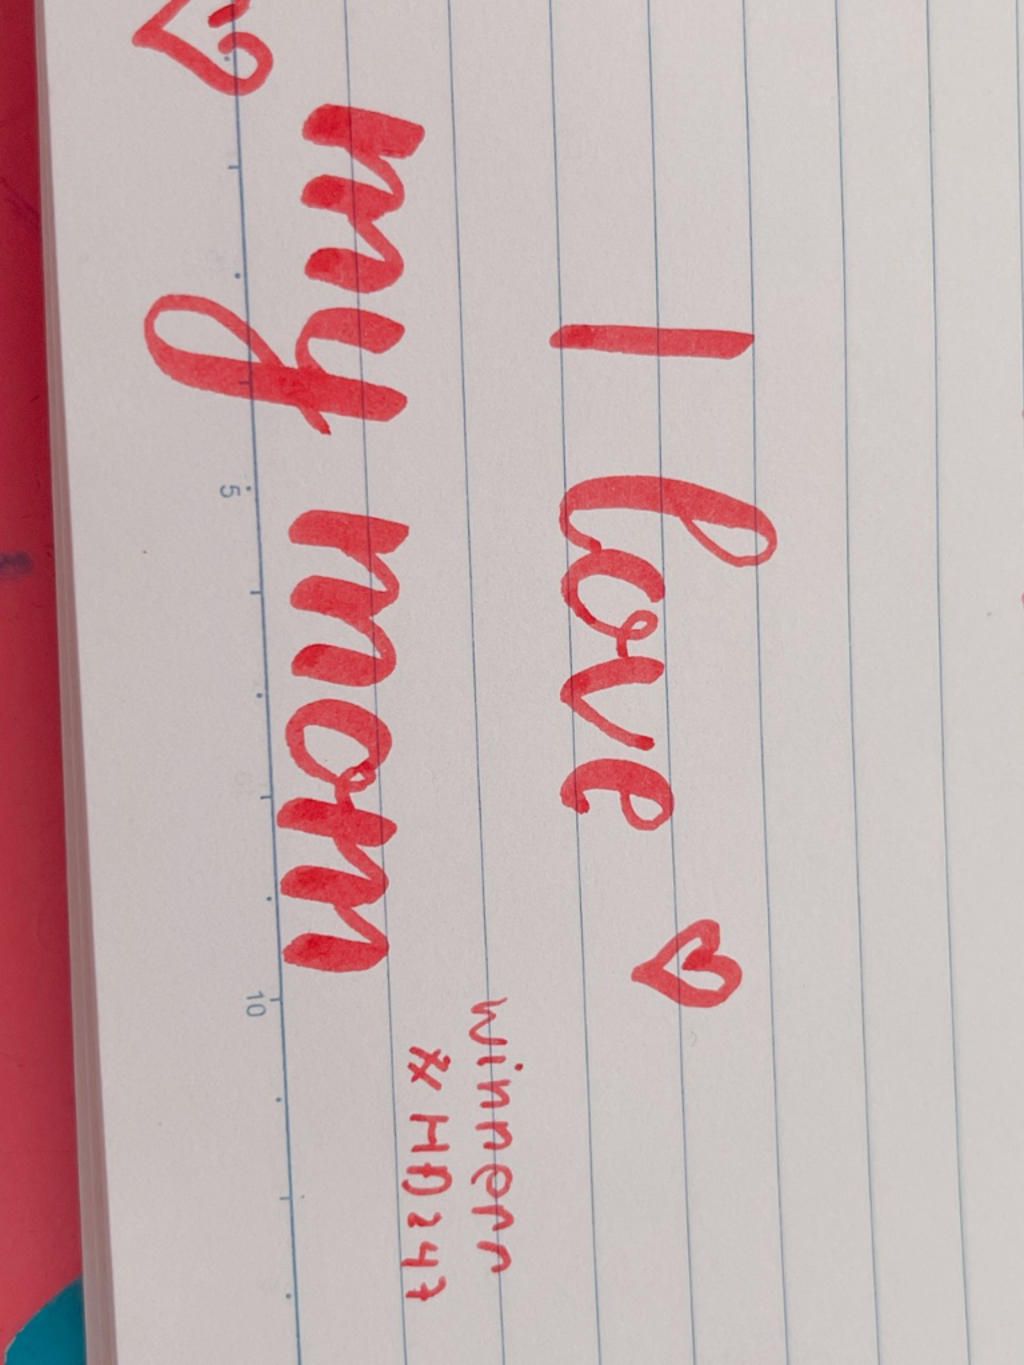 I love ♡
my mom
winnerr
xHD247
5
10